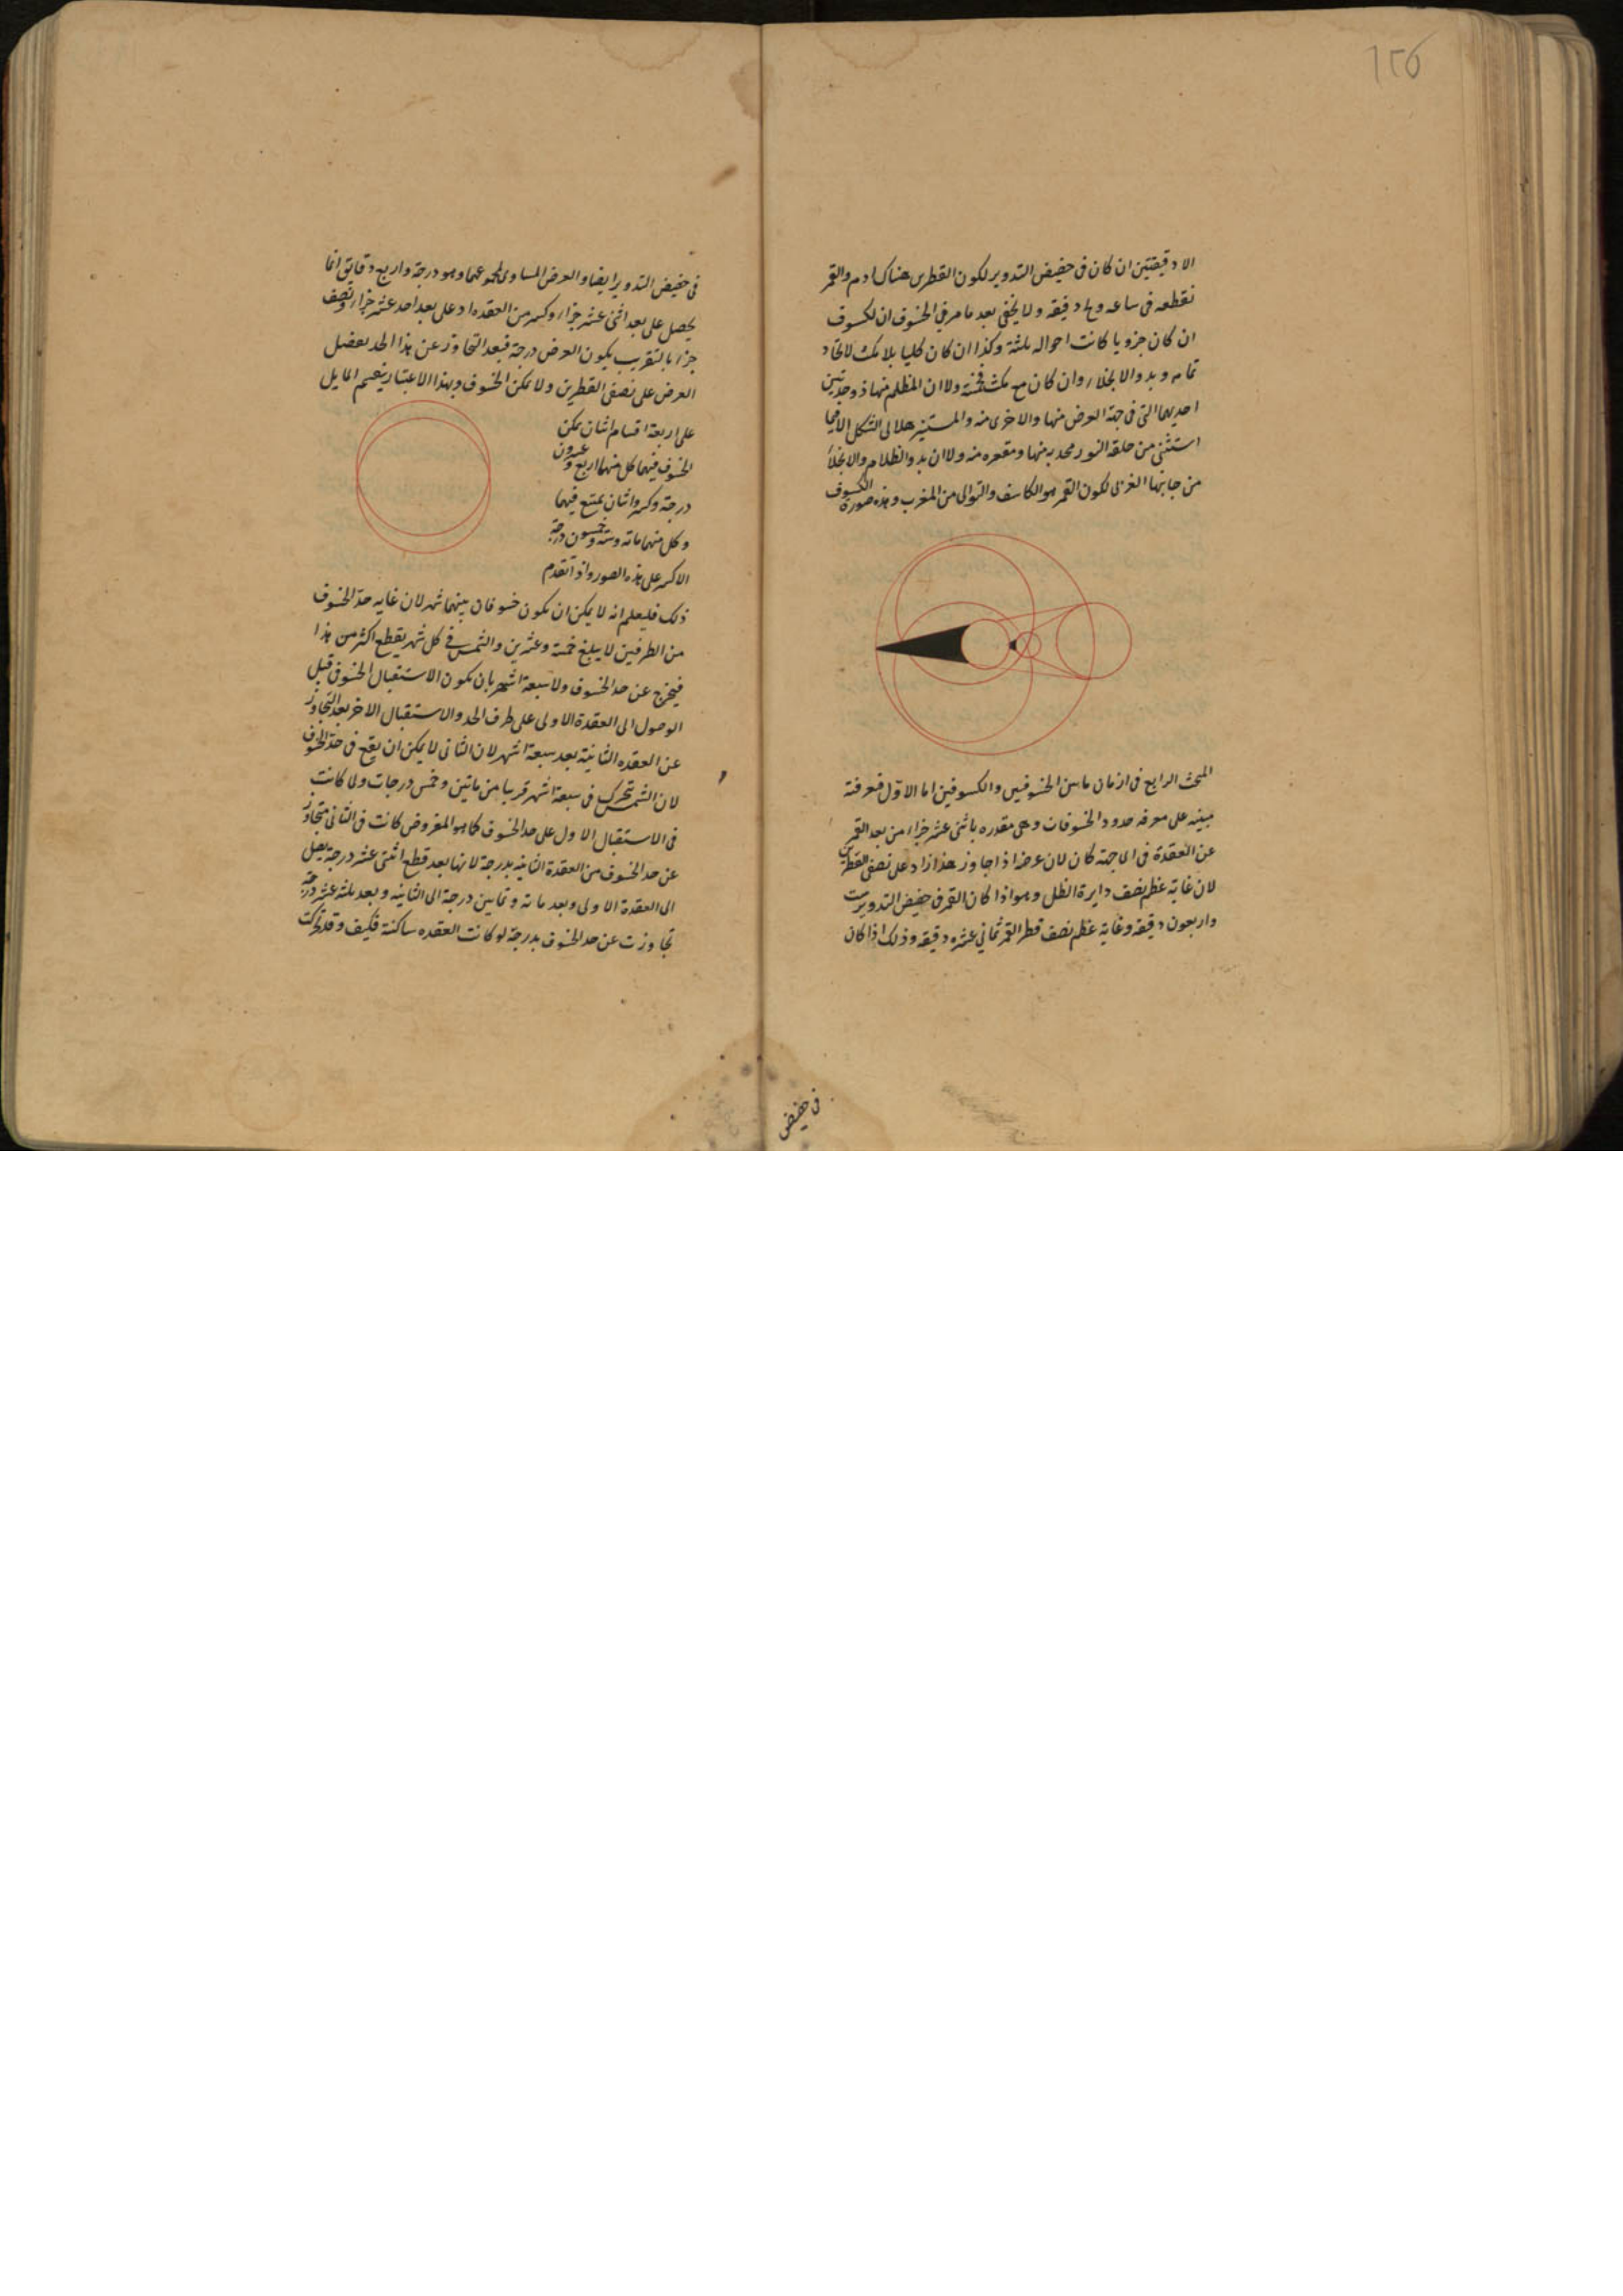 ١٢٥
الا دقيقتين ان كان فى حضيض التدوير لكون القطرين هناك ا د م والقمر
نقطعه فى ساعه و دقيقه ولا يخفى بعد ما مر فى الخسوف ان الكسوف
ان كان جزويا كانت احواله ثلثة وكذا ان كان كليا بلا مكث لاتحاد
تمامه وبدو الانجلاء وان كان مع مكث فخمسة ولا ان المظلم منها ذو حدبتين
احديهما التى فى جهة العرض منها والاخرى منه والمستنير هلالى الشكل الا فيما
استثنى من حلقة النور محدبه منها ومقعره منه ولا ان بدو الظلام والانجلاء
من جانبها الغربى لكون القمر هو الكاسف والتوالى من المغرب وهذه صورة الكسوف
المبحث الرابع فى ازمان ما بين الخسوفين والكسوفين اما الاول فمعرفته
مبينه على معرفه حدود الخسوفات وهى مقدره باثنى عشر جزاء من بعد القمر
عن العقدة فى اى جهة كان لان عرضه اذا جاوز هذا زاد على نصفى القطرين
لان غاية عظم نصف دايرة الظل وهو اذا كان القمر فى حضيض التدوير ست
واربعون دقيقه وغاية عظم نصف قطر القمر ثمانى عشره دقيقه وذلك اذا كان
فى حضيض
فى حضيض التدوير ايضا والعرض المساوى لمجموعهما وهو درجة واربع دقايق انما
يحصل على بعد اثنى عشر جزاء وكسر من العقده او على بعد احد عشر جزاء ونصف
جزء بالتقريب يكون العرض درجة فبعد التجاوز عن هذا الحد يفضل
العرض على نصفى القطرين ولا يمكن الخسوف وبهذا الاعتبار ينقسم المايل
على اربعة اقسام اثنان يمكن
الخسوف فيهما كل منهما اربع وعشرون
درجة وكسر واثنان يمتنع فيهما
وكل منهما مائه وستة وخمسون درجة
الا كسر على هذه الصور واذا تقدم
ذلك فليعلم انه لا يمكن ان يكون خسوفان بينهما شهر لان غايه حد الخسوف
من الطرفين لا يبلغ خمسة وعشرين والشمس فى كل شهر يقطع اكثر من هذا
فيخرج عن حد الخسوف ولا سبعة اشهر بان يكون الاستقبال الخسوفى قبل
الوصول الى العقدة الاولى على طرف الحد والاستقبال الاخر بعد التجاوز
عن العقده الثانية بعد سبعة اشهر لان الثانى لا يمكن ان يقع فى حد الخسوف
لان الشمس تتحرك فى سبعة اشهر قريبا من مايتين وخمس درجات ولما كانت
فى الاستقبال الاول على حد الخسوف كما هو المفروض كانت فى الثانى متجاوز
عن حد الخسوف من العقدة الثانية بدرجة لانها بعد قطع اثنى عشر درجة يصل
الى العقدة الاولى وبعد مائه وثمانين درجة الى الثانيه وبعد ثلثه عشر درجة
تجاوزت عن حد الخسوف بدرجة لو كانت العقده ساكنة فكيف وقد تحركت